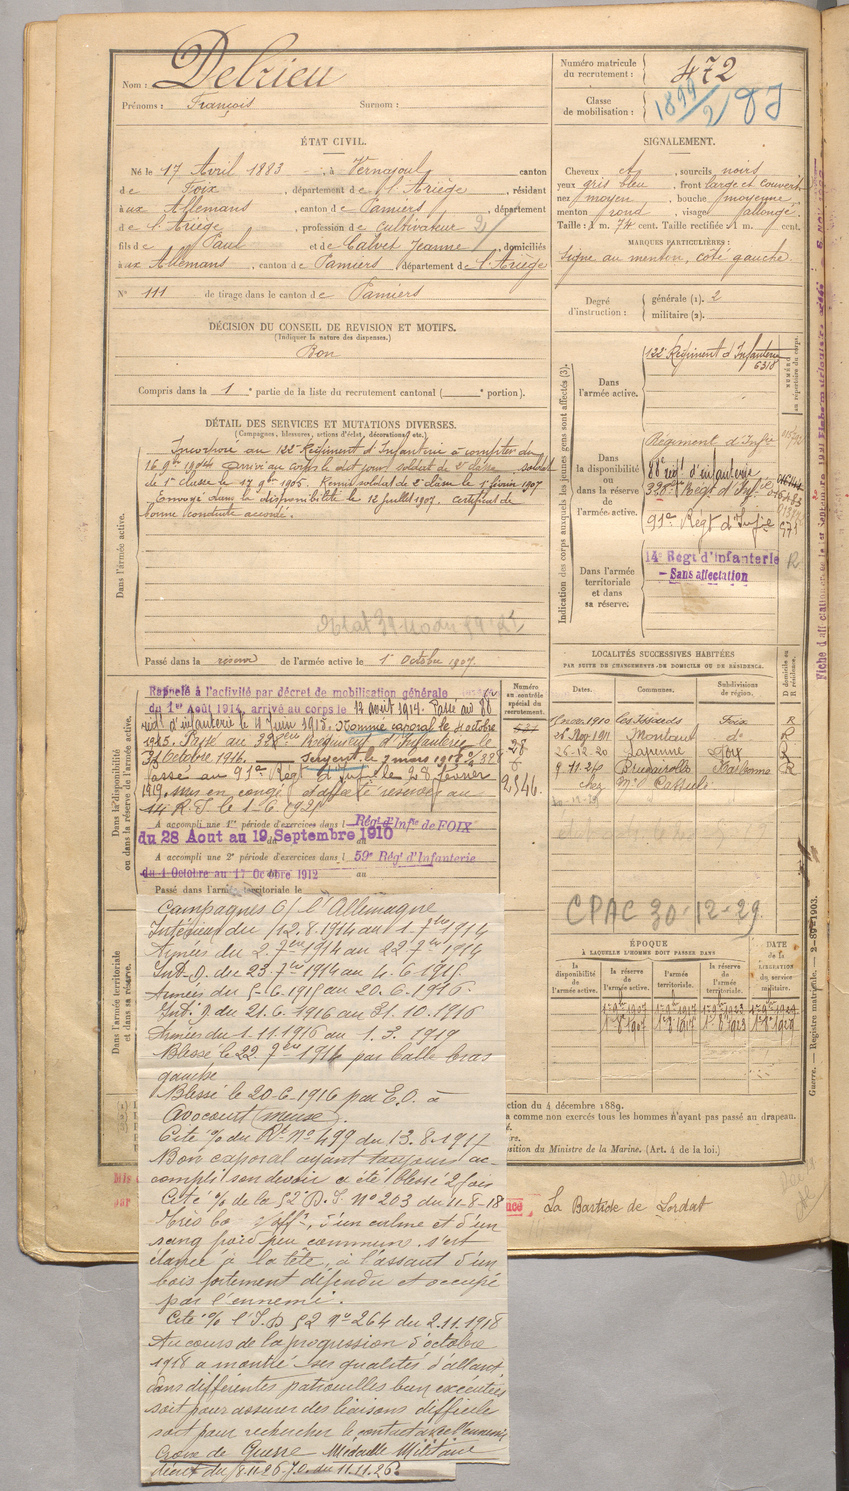 Nom : Delrieu
Prénoms : François Surnom :
Numéro matricule du recrutement : 472
Classe de mobilisation : 1899/2
ÉTAT CIVIL.
Né le 17 Avril 1883, à Vernajoul, canton
de Foix, département de l'Ariège, résidant
à aux Allemans, canton de Pamiers, département
de l'Ariège, profession de Cultivateur 2/
fils de Paul et de Calvet Jeanne, domiciliés
à aux Allemans, canton de Pamiers, département de l'Ariège
N° 111 de tirage dans le canton de Pamiers
SIGNALEMENT.
Cheveux et, sourcils noirs
yeux gris bleu, front large et couvert
nez moyen, bouche moyenne,
menton rond, visage allongé.
Taille : 1 m. 74 cent. Taille rectifiée : 1 m. cent.
MARQUES PARTICULIÈRES :
Signe au menton, côté gauche.
Degré d'instruction : générale (1). 2
militaire (2).
DÉCISION DU CONSEIL DE REVISION ET MOTIFS.
(Indiquer la nature des dispenses.)
Bon
Compris dans la 1e partie de la liste du recrutement cantonal ( e portion).
DÉTAIL DES SERVICES ET MUTATIONS DIVERSES.
(Campagnes, blessures, actions d'éclat, décorations, etc.)
Dans l'armée active.
Incorporé au 122e Régiment d'Infanterie à compter du
16 9bre 1904 Arrivé au corps le dit jour soldat de 2e classe soldat
de 1e classe le 17 9bre 1905. Remis soldat de 2e classe le 1er février 1907
Envoyé dans la disponibilité le 12 Juillet 1907. Certificat de
bonne conduite accordé.
Passé dans la réserve de l'armée active le 1er Octobre 1907.
Indication des corps auxquels les jeunes gens sont affectés (3).
NUMÉRO au répertoire du corps.
Dans l'armée active.
122e Régiment d'Infanterie
6318
Dans la disponibilité ou dans la réserve de l'armée active.
Régiment d'Infie
88e réd! d'infanterie
Régt d'Infie
91e Régt d'Infie 971
Dans l'armée territoriale et dans sa réserve.
14e Régt d'Infanterie R
– Sans affectation
LOCALITÉS SUCCESSIVES HABITÉES
PAR SUITE DE CHANGEMENTS DE DOMICILE OU DE RÉSIDENCE.
Dates. Communes. Subdivisions de région. D domicile ou R résidence.
7 nov. 1910 les Issards Foix R
Montaut do R
26-12-20 Lapenne Foix R
9-11-26 Brugairolles Narbonne R
chez
CPAC 30-12-29.
Dans la disponibilité ou dans la réserve de l'armée active.
Numéro au contrôle spécial du recrutement.
28
2546.
Rappelé à l'activité par décret de mobilisation générale
du 1er Août 1914, arrivé au corps le 12 août 1914. Passé au 88
réd! d'infanterie le 4 Juin 1915. Nommé caporal le 4 octobre
1915. Passé au Régiment d'Infanterie le
31 Octobre 1916. Sergent le 7 mars 1918
Passé au 91e Régt d'Infie le 28 février
1919. mis en congé affecté réserve au
14 R.I. le 1-6-1921
A accompli une 1re période d'exercices dans l Régt d'Infie de FOIX
du 28 Aout au 19 Septembre 1910
A accompli une 2e période d'exercices dans l 59e Régt d'Infanterie
du 1 Octobre au 17 Octobre 1912 au
Passé dans l'armée territoriale le
ÉPOQUE
À LAQUELLE L'HOMME DOIT PASSER DANS
DATE de la LIBÉRATION du service militaire.
la disponibilité de l'armée active. la réserve de l'armée active. l'armée territoriale. la réserve de l'armée territoriale.
1er 8bre 1907 1er 8bre 1917 1er 8bre 1923 1er 8bre 1929
Dans l'armée territoriale et dans sa réserve.
Campagnes C/ l'Allemagne
Intérieur du 12.8.1914 au 1.7bre 1914
Armées du 2.7bre 1914 au 22 7bre 1914
Int. D. du 23.7bre 1914 au 4.6.1915.
Armées du 5-6.1915 au 20.6.1916.
Int. D. du 21.6.1916 au 31.10.1916
Armées du 1.11.1916 au 1.3.1919
Blessé le 22 7bre 1914 par balle bras
gauche
Blessé le 20-6-1916 par E.O. à
Avocourt (meuse).
Cité % du Rt N° 499 du 13.8.1917
Bon caporal ayant toujours ac-
compli son devoir a été blessé 2 fois
Cité % de la 52e D.I. N° 203 du 11-8-18
Très bon s/offr, d'un calme et d'un
sang froid peu communs. s'est
élancé à la tête, à l'assaut d'un
bois fortement défendu et occupé
par l'ennemi.
Cité % l'I.D 52 N° 264 du 2.11.1918
Au cours de la progression d'octobre
1918 a montré ses qualités d'allant
dans différentes patrouilles bien exécutées
soit pour assurer des liaisons difficile
soit pour rechercher le contact avec l'ennemi
Croix de Guerre Médaille Militaire
décret du 8.11.26 J.O. du 11.11.26.
ction du 4 décembre 1889.
a comme non exercés tous les hommes n'ayant pas passé au drapeau.
osition du Ministre de la Marine. (Art. 4 de la loi.)
La Bastide de Lordat
Guerre. — Registres matricule. — 1903.